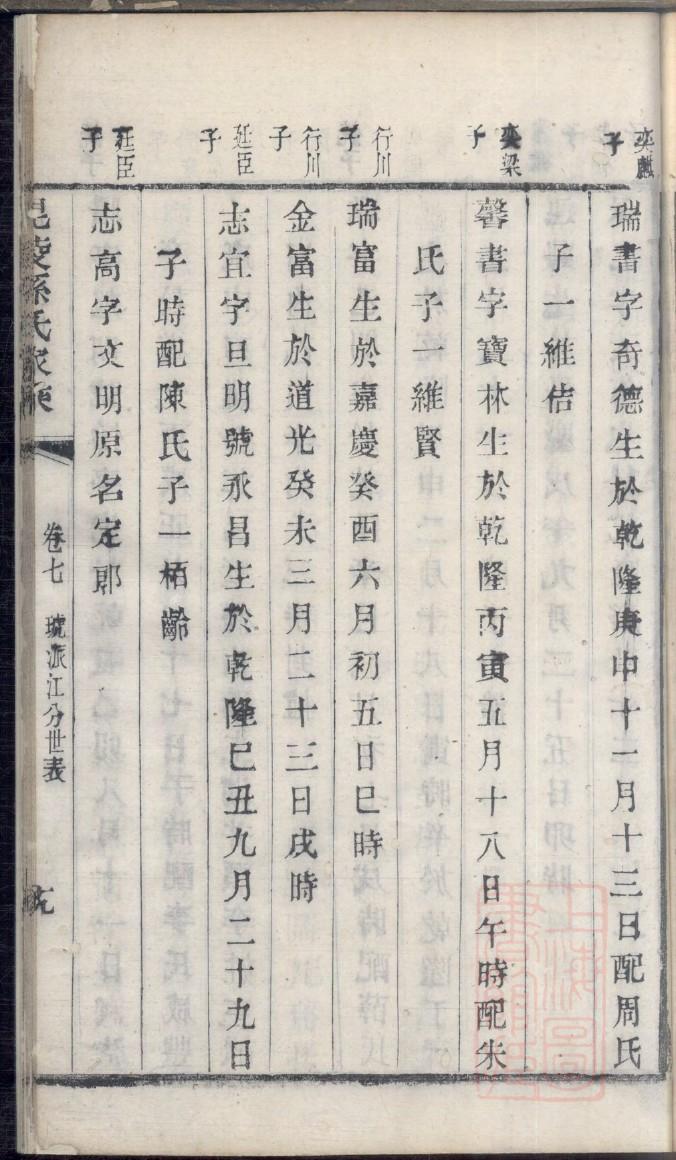 奕麟子
瑞書字奇德生於乾隆庚申十一月十三日配周氏
子一維佶
奕梁子
馨書字寶林生於乾隆丙寅五月十八日午時配朱
氏子一維賢
行川子
瑞富生於嘉慶癸酉六月初五日巳時
行川子
金富生於道光癸未三月二十三日戌時
延臣子
志宜字旦明號永昌生於乾隆己丑九月二十九日
子時配陳氏子一栢齡
廷臣子
志高字文明原名定郎
毘陵孫氏家乘
卷七 琥派江分世表
上海圖書館藏